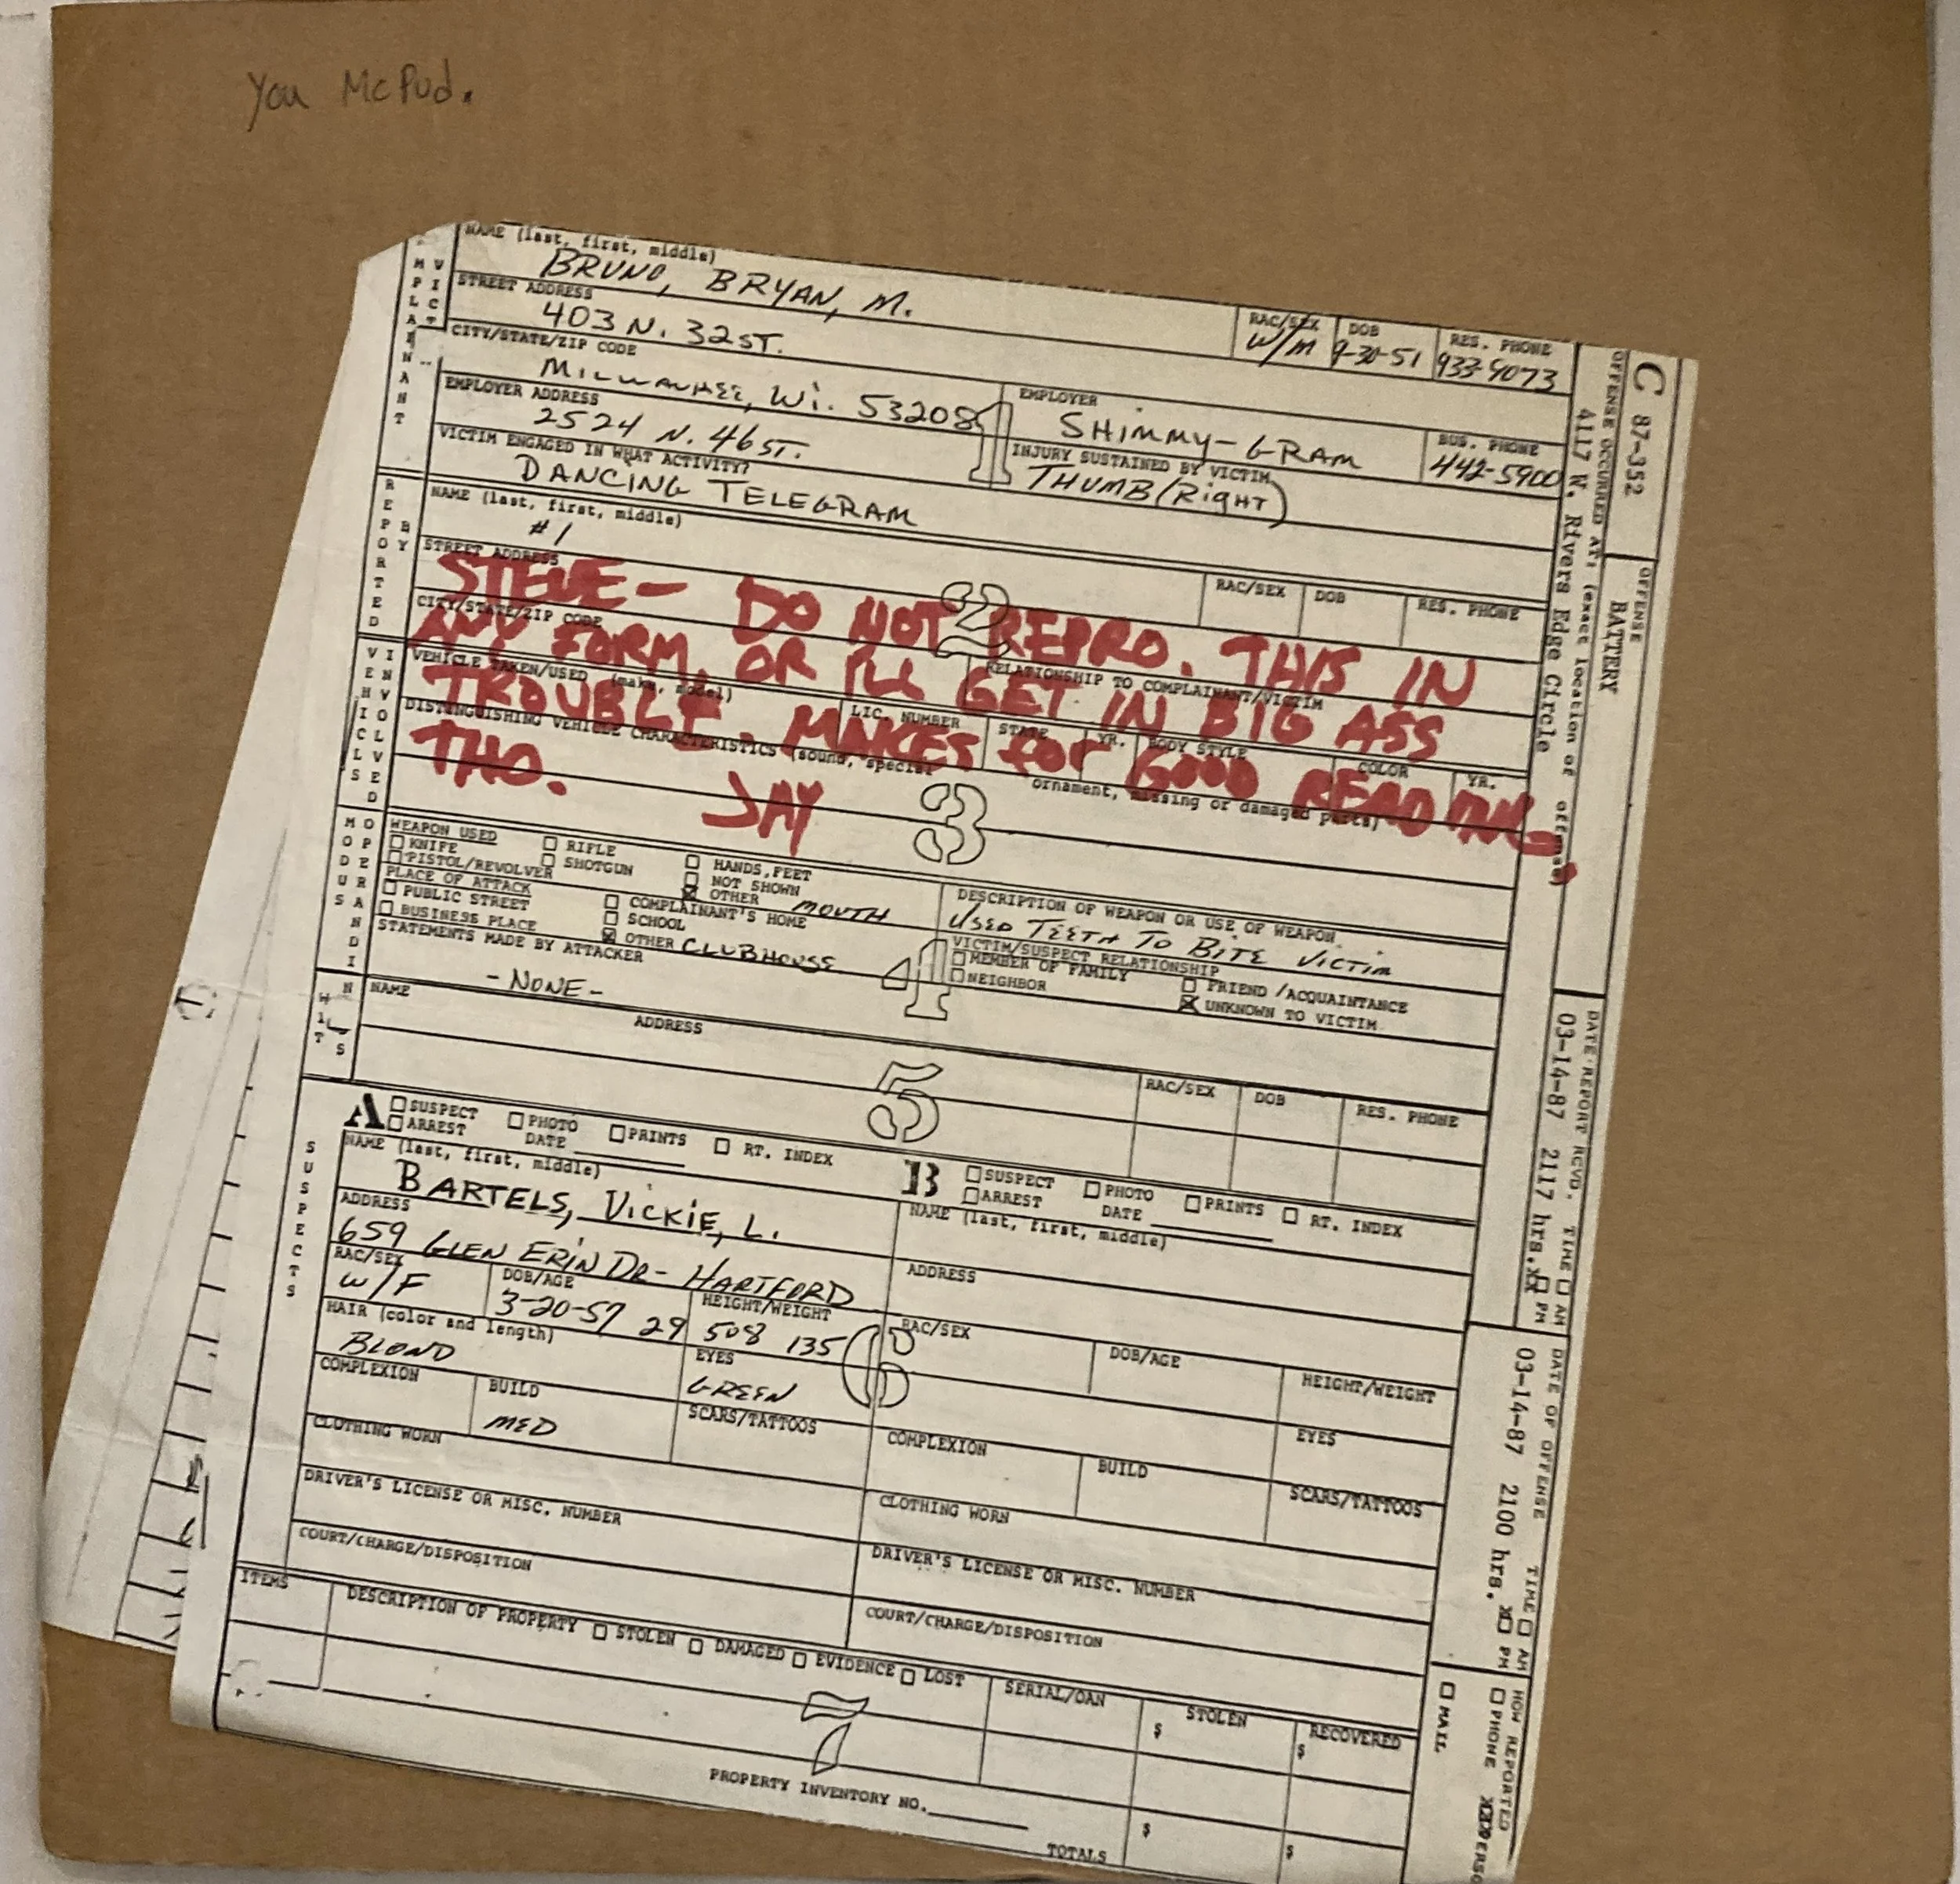 You McPud.
NAME (last, first, middle)
BRUNO, BRYAN, M.
RAC/SEX
W/M
DOB
9-30-51
RES. PHONE
933-9073
STREET ADDRESS
403 N. 32 ST.
CITY/STATE/ZIP CODE
MILWAUKEE, Wi. 53208
EMPLOYER
SHIMMY-GRAM
BUS. PHONE
442-5900
EMPLOYER ADDRESS
2524 N. 46 ST.
1
INJURY SUSTAINED BY VICTIM
THUMB (RIGHT)
VICTIM ENGAGED IN WHAT ACTIVITY?
DANCING TELEGRAM
REPORTED BY
NAME (last, first, middle)
#1
RAC/SEX
DOB
RES. PHONE
STREET ADDRESS
2
CITY/STATE/ZIP CODE
RELATIONSHIP TO COMPLAINANT/VICTIM
STEVE- DO NOT REPRO. THIS IN
ANY FORM, OR I'LL GET IN BIG ASS
TROUBLE. MAKES for GOOD READING,
THO. JAY
VEHICLES INVOLVED
VEHICLE TAKEN/USED (make, model)
LIC. NUMBER
STATE
YR.
BODY STYLE
COLOR
YR.
DISTINGUISHING VEHICLE CHARACTERISTICS (sound, special ornament, missing or damaged parts)
3
MODUS OPERANDI
WEAPON USED
KNIFE
RIFLE
HANDS, FEET
PISTOL/REVOLVER
SHOTGUN
NOT SHOWN
OTHER MOUTH
DESCRIPTION OF WEAPON OR USE OF WEAPON
USED TEETH TO BITE VICTIM
PLACE OF ATTACK
PUBLIC STREET
COMPLAINANT'S HOME
BUSINESS PLACE
SCHOOL
OTHER CLUBHOUSE
VICTIM/SUSPECT RELATIONSHIP
MEMBER OF FAMILY
FRIEND/ACQUAINTANCE
NEIGHBOR
UNKNOWN TO VICTIM
STATEMENTS MADE BY ATTACKER
-NONE-
4
NAME
ADDRESS
5
RAC/SEX
DOB
RES. PHONE
SUSPECTS
A
SUSPECT
PHOTO
PRINTS
RT. INDEX
ARREST
DATE
NAME (last, first, middle)
BARTELS, VICKIE, L.
ADDRESS
659 GLEN ERIN DR- HARTFORD
RAC/SEX
W/F
DOB/AGE
3-20-57 29
HEIGHT/WEIGHT
508 135
HAIR (color and length)
BLOND
EYES
GREEN
COMPLEXION
BUILD
MED
SCARS/TATTOOS
CLOTHING WORN
DRIVER'S LICENSE OR MISC. NUMBER
COURT/CHARGE/DISPOSITION
6
B
SUSPECT
PHOTO
PRINTS
RT. INDEX
ARREST
DATE
NAME (last, first, middle)
ADDRESS
RAC/SEX
DOB/AGE
HEIGHT/WEIGHT
EYES
COMPLEXION
BUILD
SCARS/TATTOOS
CLOTHING WORN
DRIVER'S LICENSE OR MISC. NUMBER
COURT/CHARGE/DISPOSITION
ITEMS
DESCRIPTION OF PROPERTY STOLEN DAMAGED EVIDENCE LOST
SERIAL/OAN
STOLEN
RECOVERED
$
$
7
PROPERTY INVENTORY NO.
TOTALS
$
$
C 87-352
OFFENSE
BATTERY
OFFENSE OCCURRED AT: (exact location of offense)
4117 N. Rivers Edge Circle
DATE REPORT RCVD. TIME AM PM
03-14-87 2117 hrs.
DATE OF OFFENSE TIME AM PM
03-14-87 2100 hrs.
HOW REPORTED
PHONE
MAIL